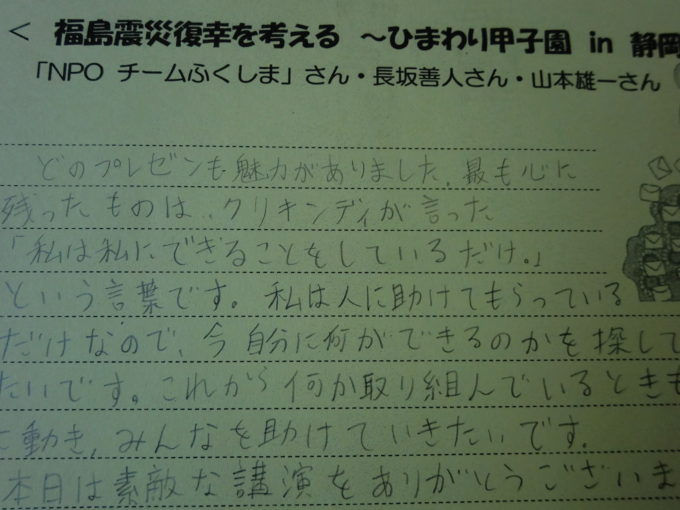 < 福島震災復幸を考える ～ひまわり甲子園 in 静岡
「NPO チームふくしま」さん・長坂善人さん・山本雄一さん
どのプレゼンも魅力がありました。最も心に
残ったものは、クリキンディが言った
「私は私にできることをしているだけ。」
という言葉です。私は人に助けてもらっている
だけなので、今自分に何ができるのかを探して
たいです。これから何か取り組んでいるときも
動き、みんなを助けていきたいです。
本日は素敵な講演をありがとうございま